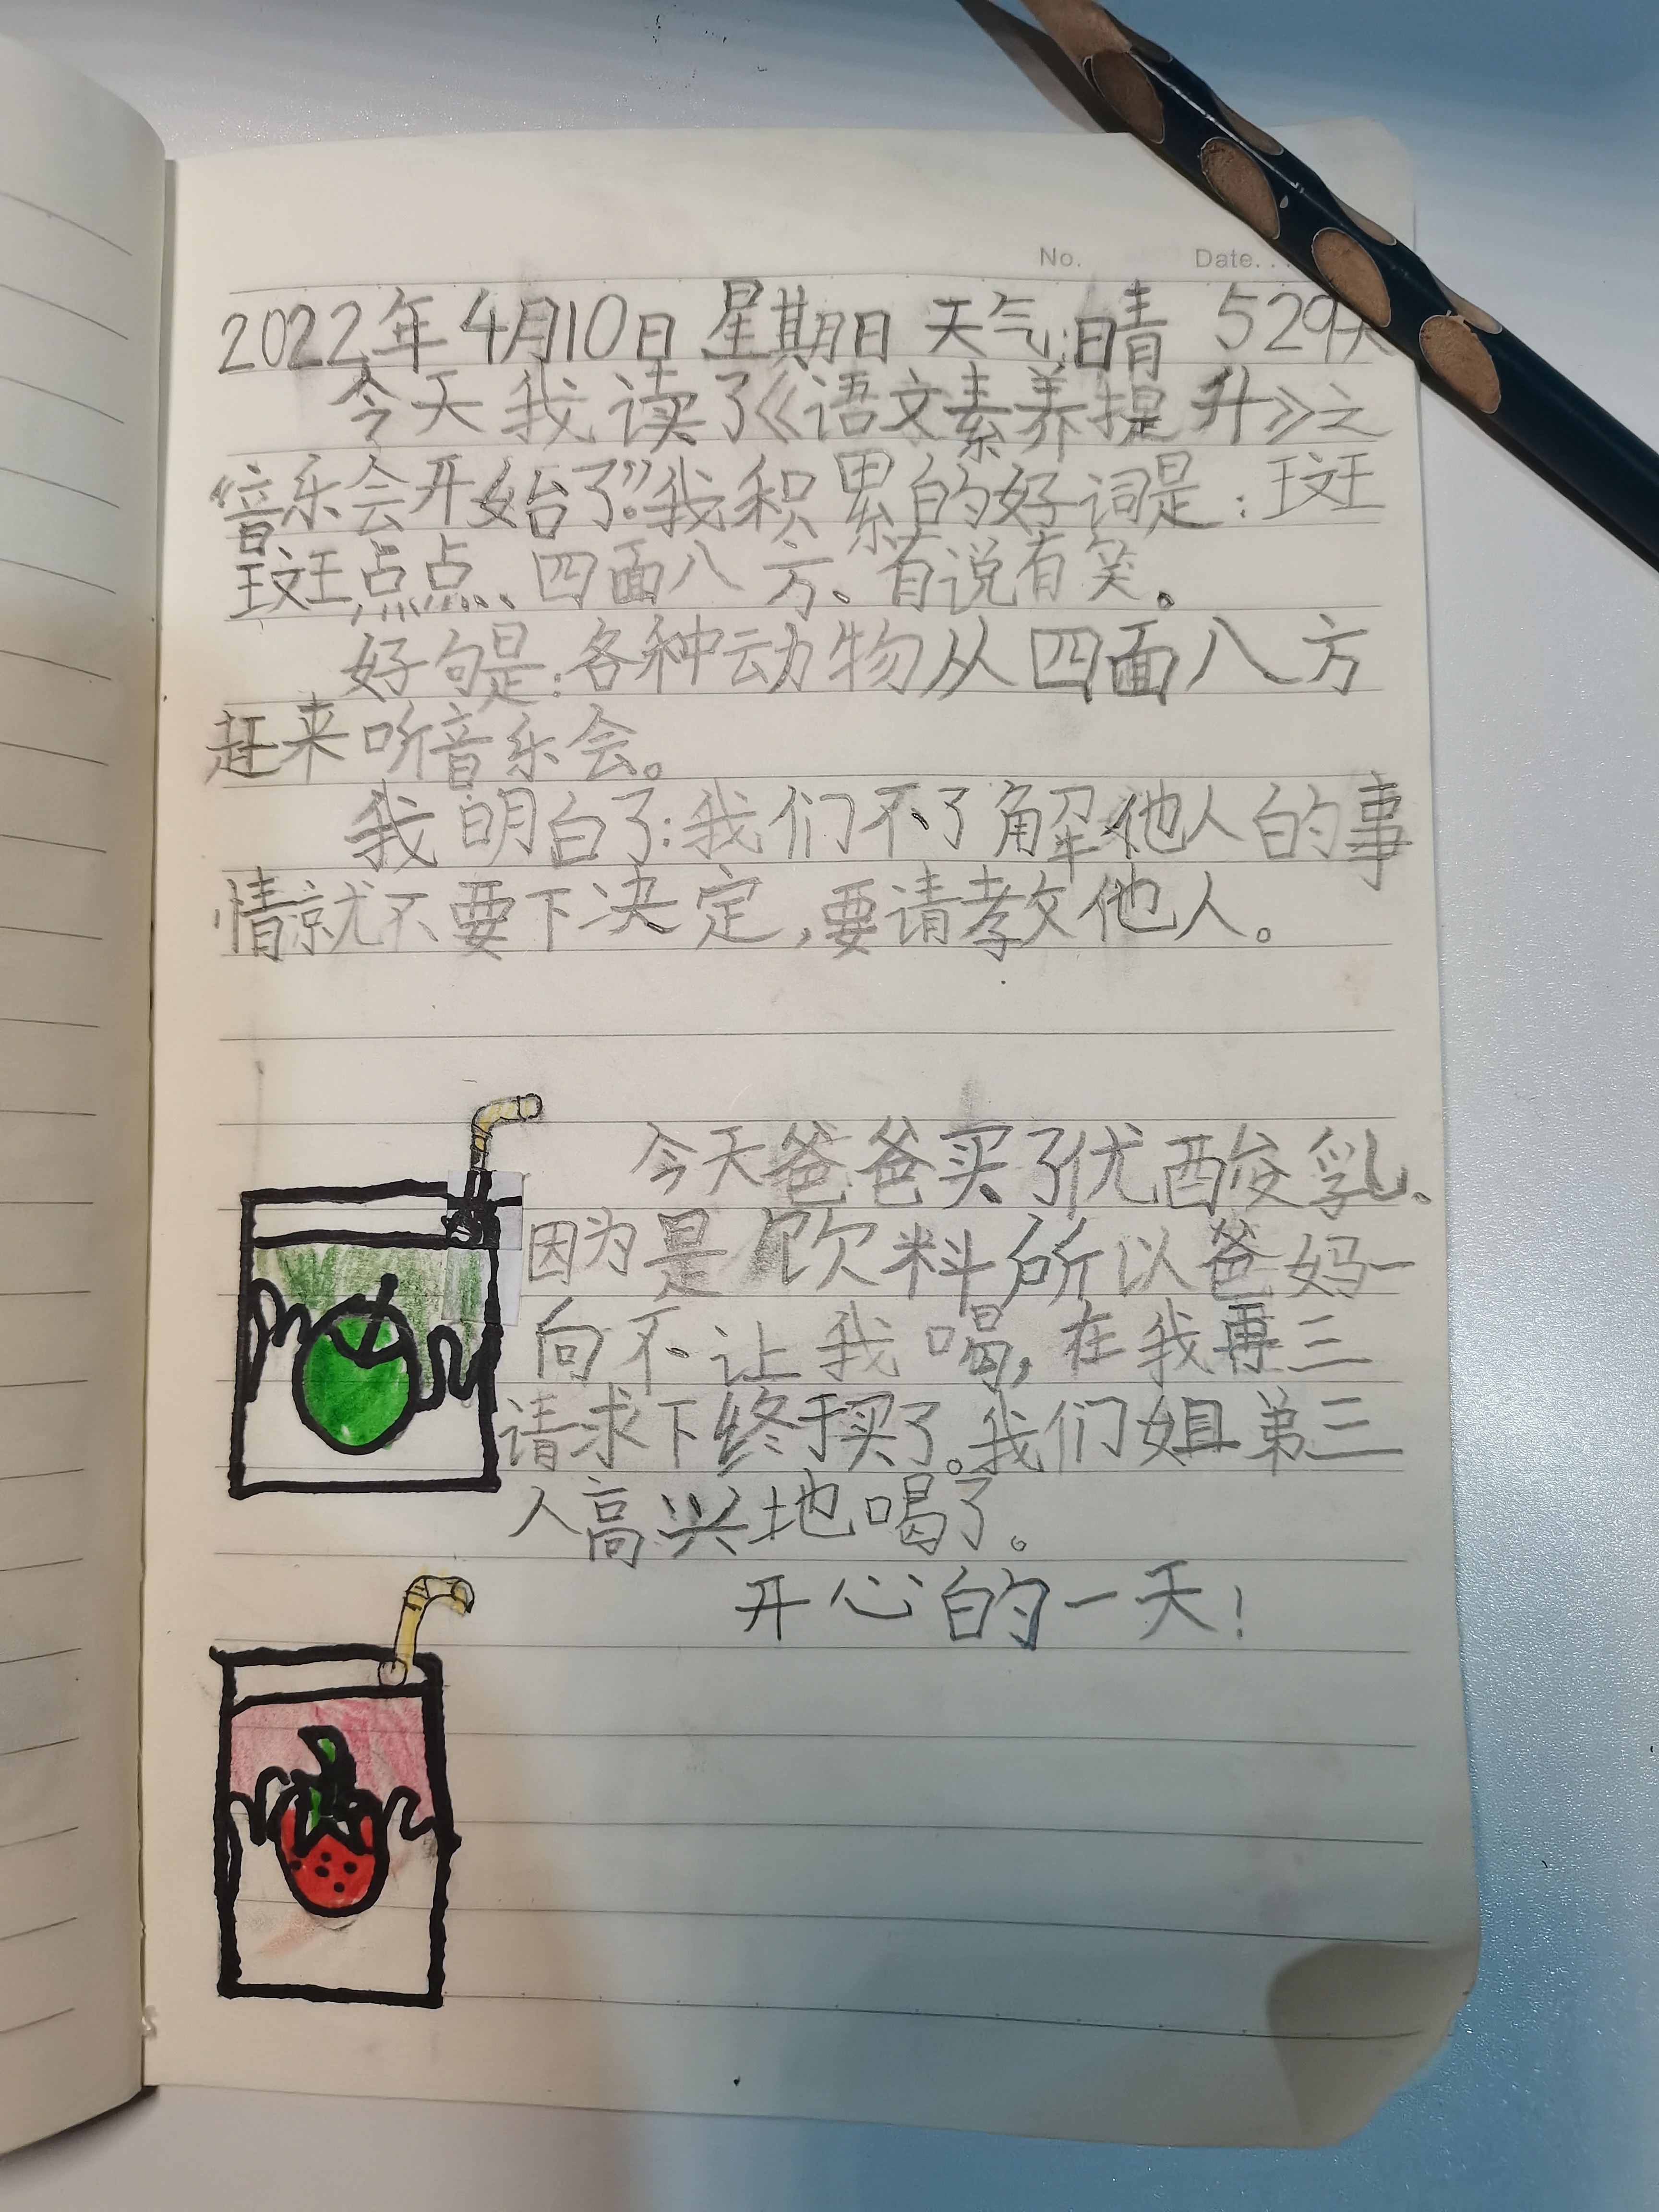 No. Date.
2022年4月10日 星期日 天气:晴 529天
今天我读了《语文素养提升》之
“音乐会开始了”。我积累的好词是：斑
斑点点、四面八方、有说有笑。
好句是：各种动物从四面八方
赶来听音乐会。
我明白了：我们不了解他人的事
情就不要下决定，要请教他人。
今天爸爸买了优酸乳、
因为是饮料所以爸妈一
向不让我喝，在我再三
请求下终于买了。我们姐弟三
人高兴地喝了。
开心的一天！